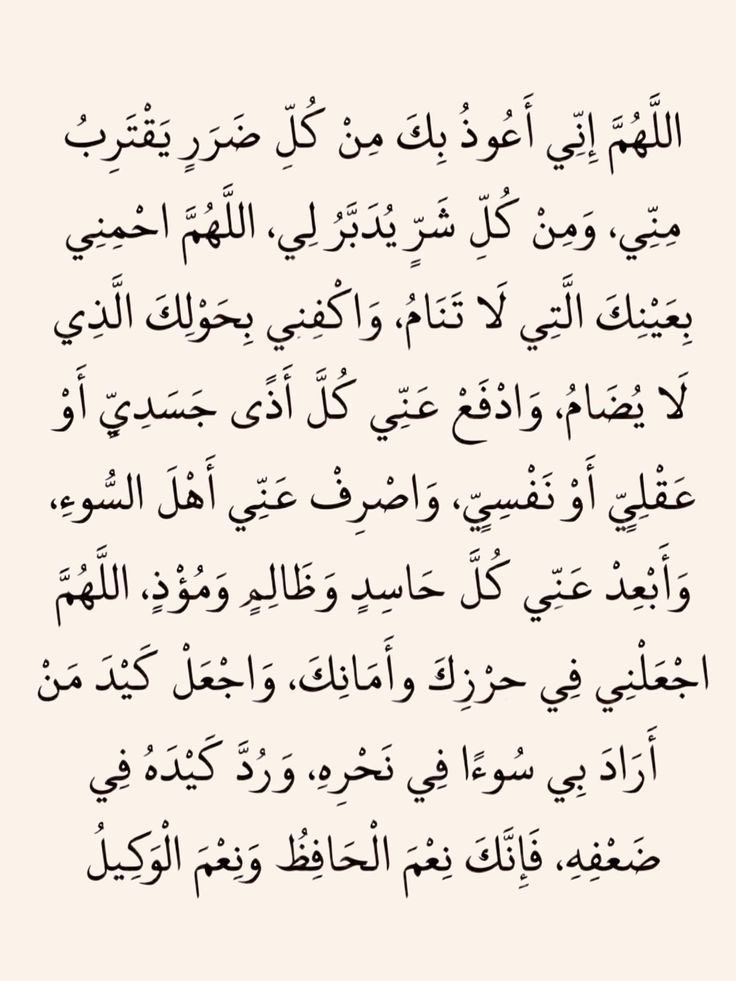 اللَّهُمَّ إِنِّي أَعُوذُ بِكَ مِنْ كُلِّ ضَرَرٍ يَقْتَرِبُ
مِنِّي، وَمِنْ كُلِّ شَرٍّ يُدَبَّرُ لِي، اللَّهُمَّ احْمِنِي
بِعَيْنِكَ الَّتِي لَا تَنَامُ، وَاكْفِنِي بِحَوْلِكَ الَّذِي
لَا يُضَامُ، وَادْفَعْ عَنِّي كُلَّ أَذًى جَسَدِيٍّ أَوْ
عَقْلِيٍّ أَوْ نَفْسِيٍّ، وَاصْرِفْ عَنِّي أَهْلَ السُّوءِ،
وَأَبْعِدْ عَنِّي كُلَّ حَاسِدٍ وَظَالِمٍ وَمُؤْذٍ، اللَّهُمَّ
اجْعَلْنِي فِي حرْزِكَ وأَمَانِكَ، وَاجْعَلْ كَيْدَ مَنْ
أَرَادَ بِي سُوءًا فِي نَحْرِهِ، وَرُدَّ كَيْدَهُ فِي
ضَعْفِهِ، فَإِنَّكَ نِعْمَ الْحَافِظُ وَنِعْمَ الْوَكِيلُ